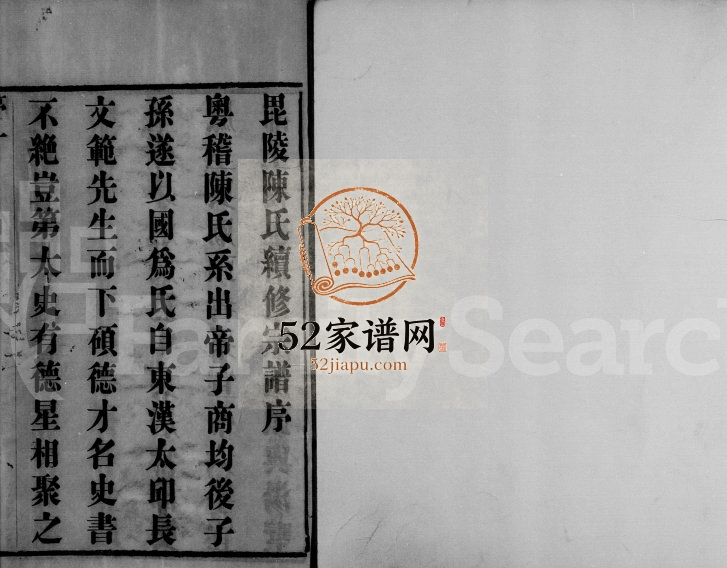 毘陵陳氏續修宗譜序
粤稽陳氏系出帝子商均後子
孫遂以國爲氏自東漢太邱長
文範先生而下碩德才名史書
不絶豈第太史有德星相聚之
52家谱网
52jiapu.com
FamilySearch